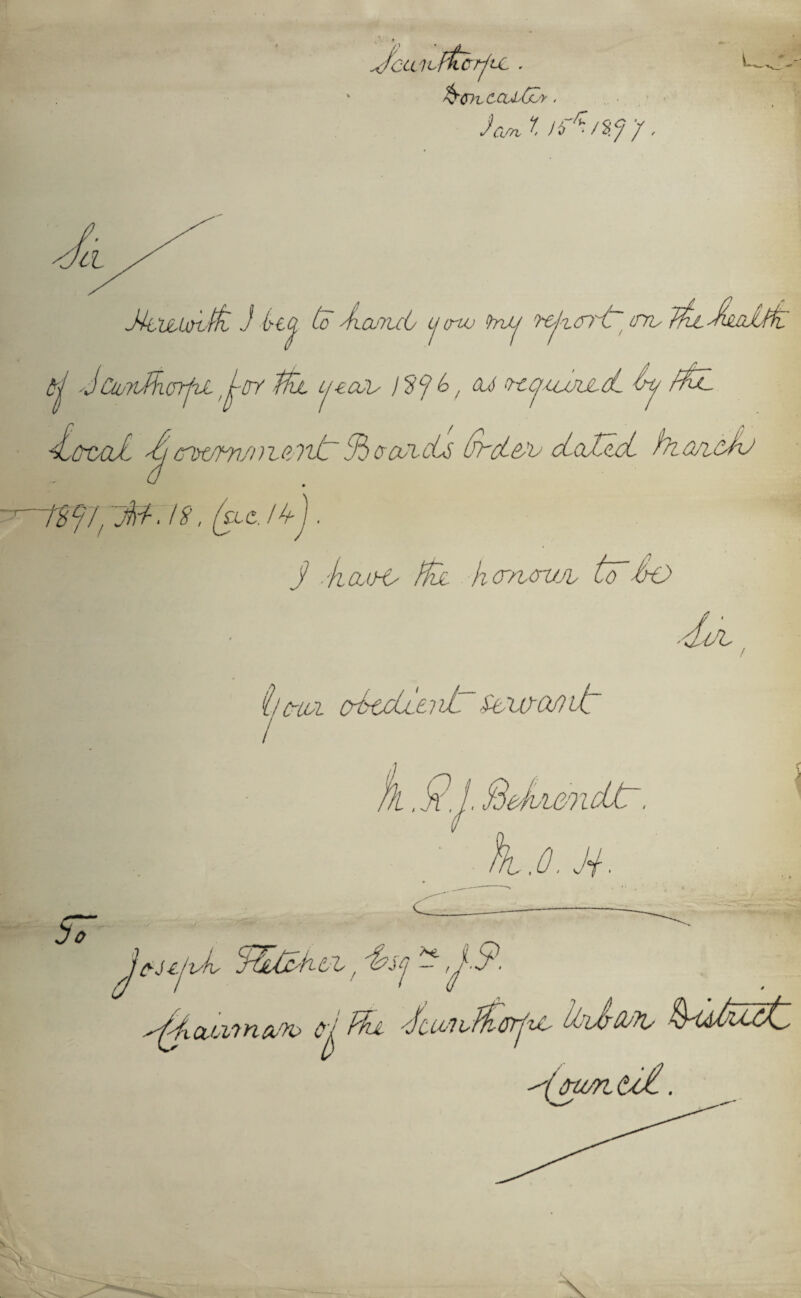 Scunthorpe.
Doncaster.
Jany. 15th. 1897.
Sir
Herewith I beg to hand you my report, on the health
of Scunthorpe, for the year 1896, as required by the
Local Government Boards Order dated March
1891, Art. 18, (sec. 14).
I have the honour to be
Sir,
Your obedient servant
M.R.J. Behrendt.
M.O.H.
To
Joseph Fletcher, Esqre, J.P.
Chairman of the Scunthorpe Urban District
Council.